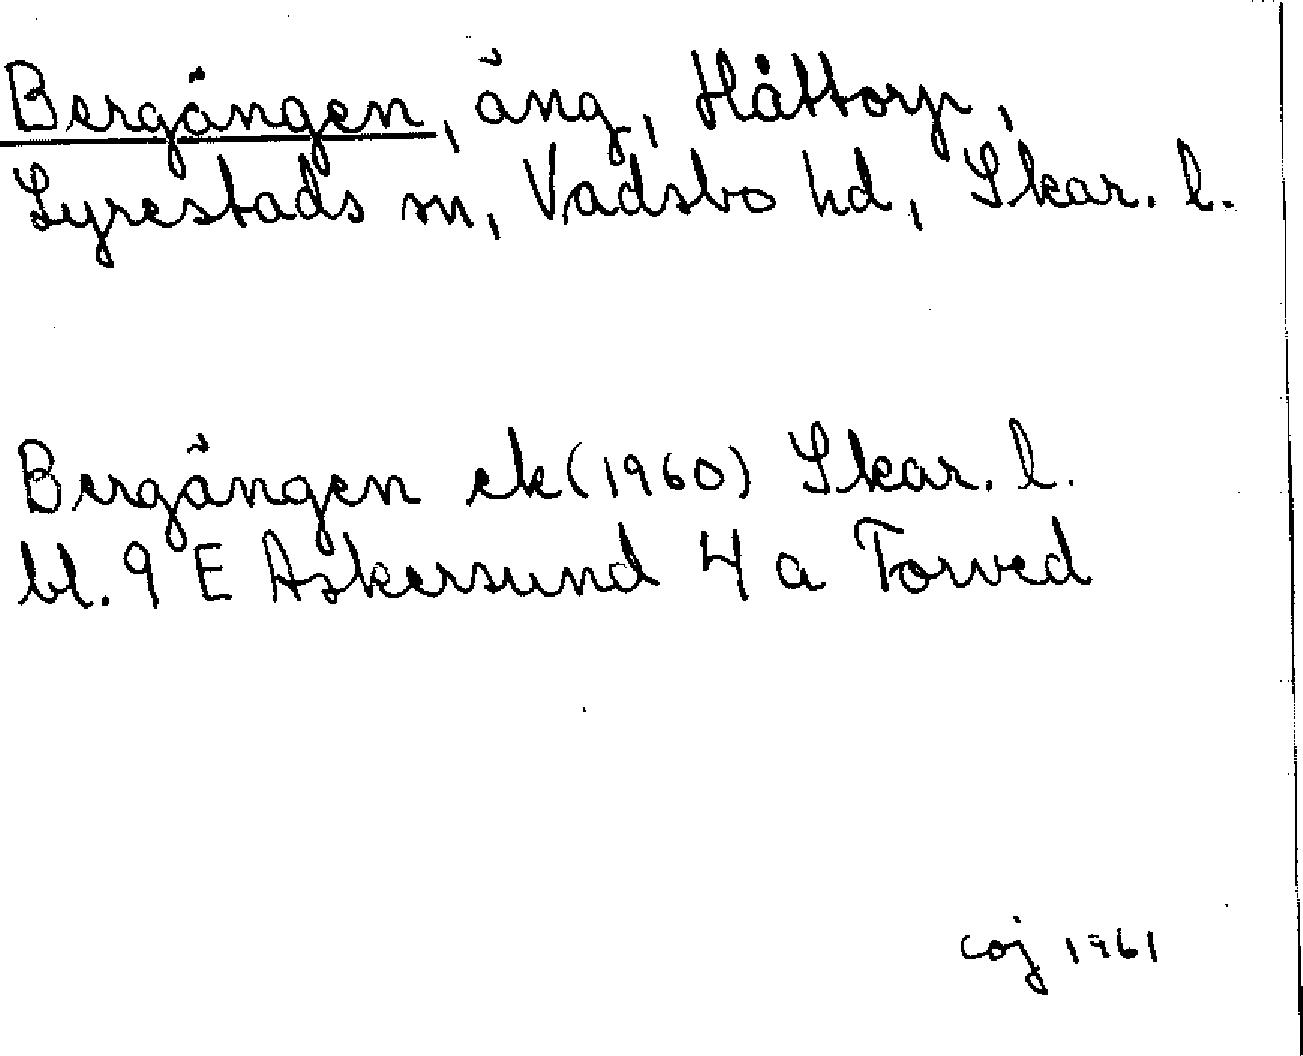 Bergängen, äng, Håttorp,
Lyrestads sn, Vadsbo hd, Skar. l.
Bergängen ek (1960) Skar. l.
bl. 9 E Askersund 4 a Torved
coj 1961